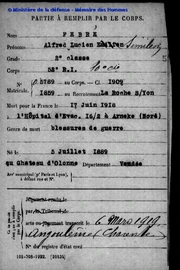 © Ministère de la défense - Mémoire des Hommes
PARTIE À REMPLIR PAR LE CORPS.
Nom FABRE
Prénoms Alfred Lucien
Grade 2° classe
Corps 58° R.I.
N° 5789 au Corps. — Cl. 1909
Matricule. 1859 au Recrutement La Roche S/Yon
Mort pour la France le 17 Juin 1918
à l'Hôpital d'Evac. 16/2 à Arneke (Nord)
Genre de mort blessures de guerre
Né le 3 Juillet 1889
au Chateau d'Olonne Département Vendée
Arr' municipal (p' Paris et Lyon),
à défaut rue et N°.
Jugement rendu le
par le Tribunal de
acte ou jugement transcrit le 6 Mars 1919
à Angoulême Charente
N° du registre d'état civil